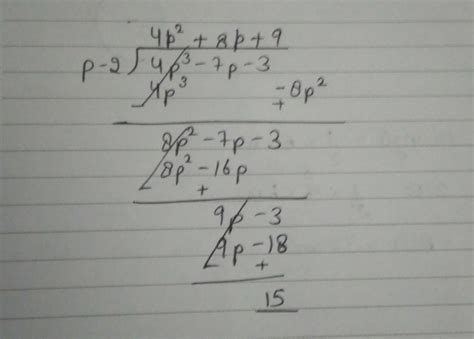 4p² + 8p + 9
p-2) 4p³ - 7p - 3
4p³ - 8p²
- +
8p² - 7p - 3
8p² - 16p
- +
9p - 3
9p - 18
- +
15